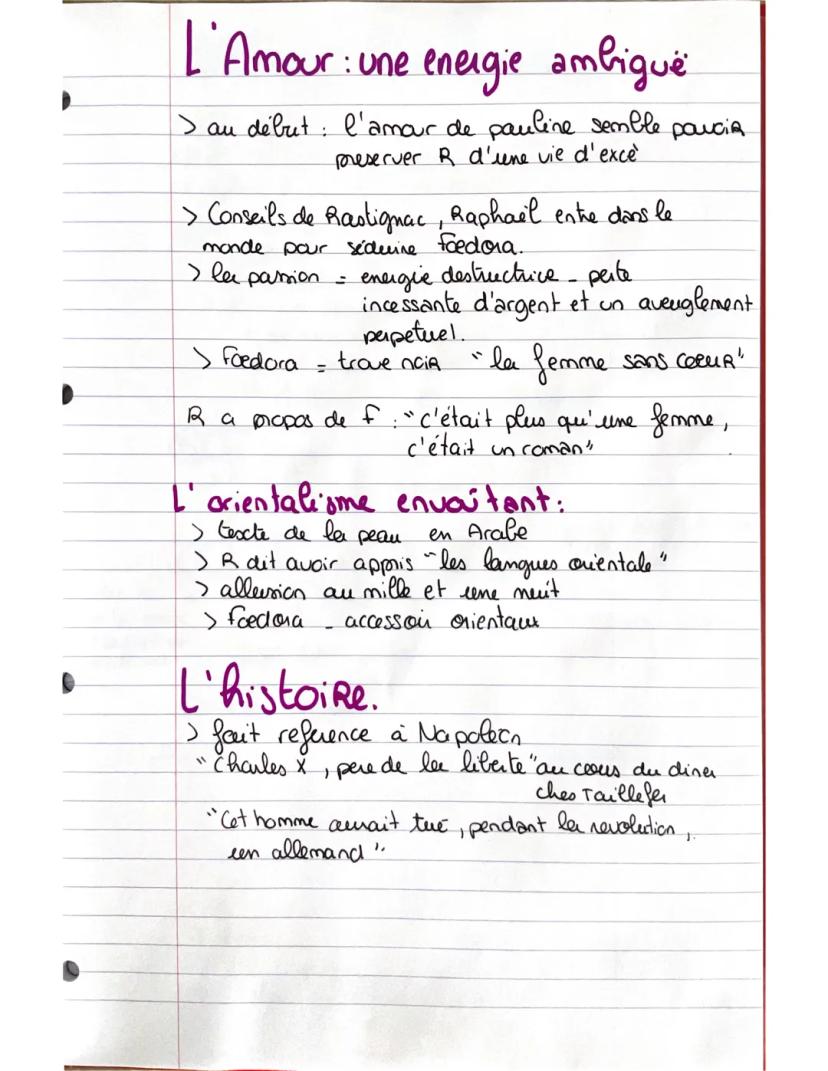 L'Amour : une energie ambiguë
> au début : l'amour de pauline semble pouvoir
preserver R d'une vie d'excè
> Conseils de Rastignac, Raphaël entre dans le
monde pour séduire Foedora.
> la passion = energie destructrice - perte
incessante d'argent et un aveuglement
perpetuel.
> Foedora = trou noir "la femme sans coeur"
R a propos de f : "c'était plus qu'une femme,
c'était un roman"
L'orientalisme envoûtant :
> texte de la peau en Arabe
> R dit avoir appris "les langues orientale"
> allusion au mille et une nuit
> foedora - accessoir orientaux
L'histoire.
> fait reference à Napoleon
"Charles X, pere de la liberte" au cours du diner
ches Taillefer
"Cet homme aurait tué, pendant la revolution,
un allemand".